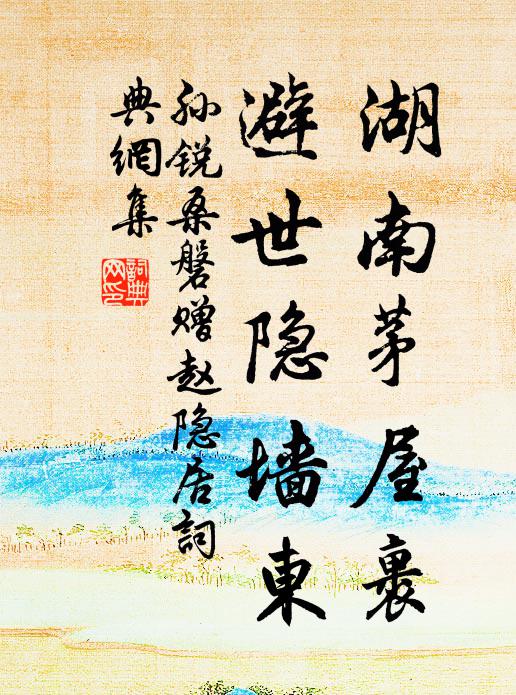 湖南茅屋裹
避世隐墙東
孙锐桑磐赠赵隐居詞
典網集
詞典
网印